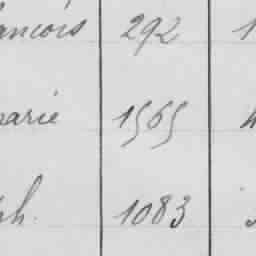 ancois 292 1
marie 1565 4
ph. 1083